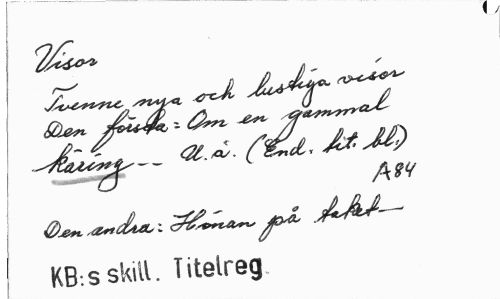 Visor
Tvenne nya och lustiga visor
Den första: Om en gammal
käring -- U.å. (End. tit. bl.)
A84
Den andra: Hönan på taket—
KB:s skill. Titelreg.